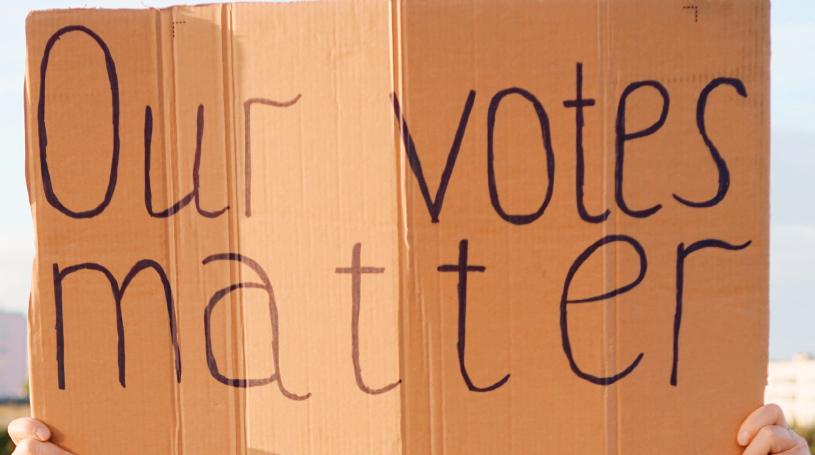 Our votes
matter